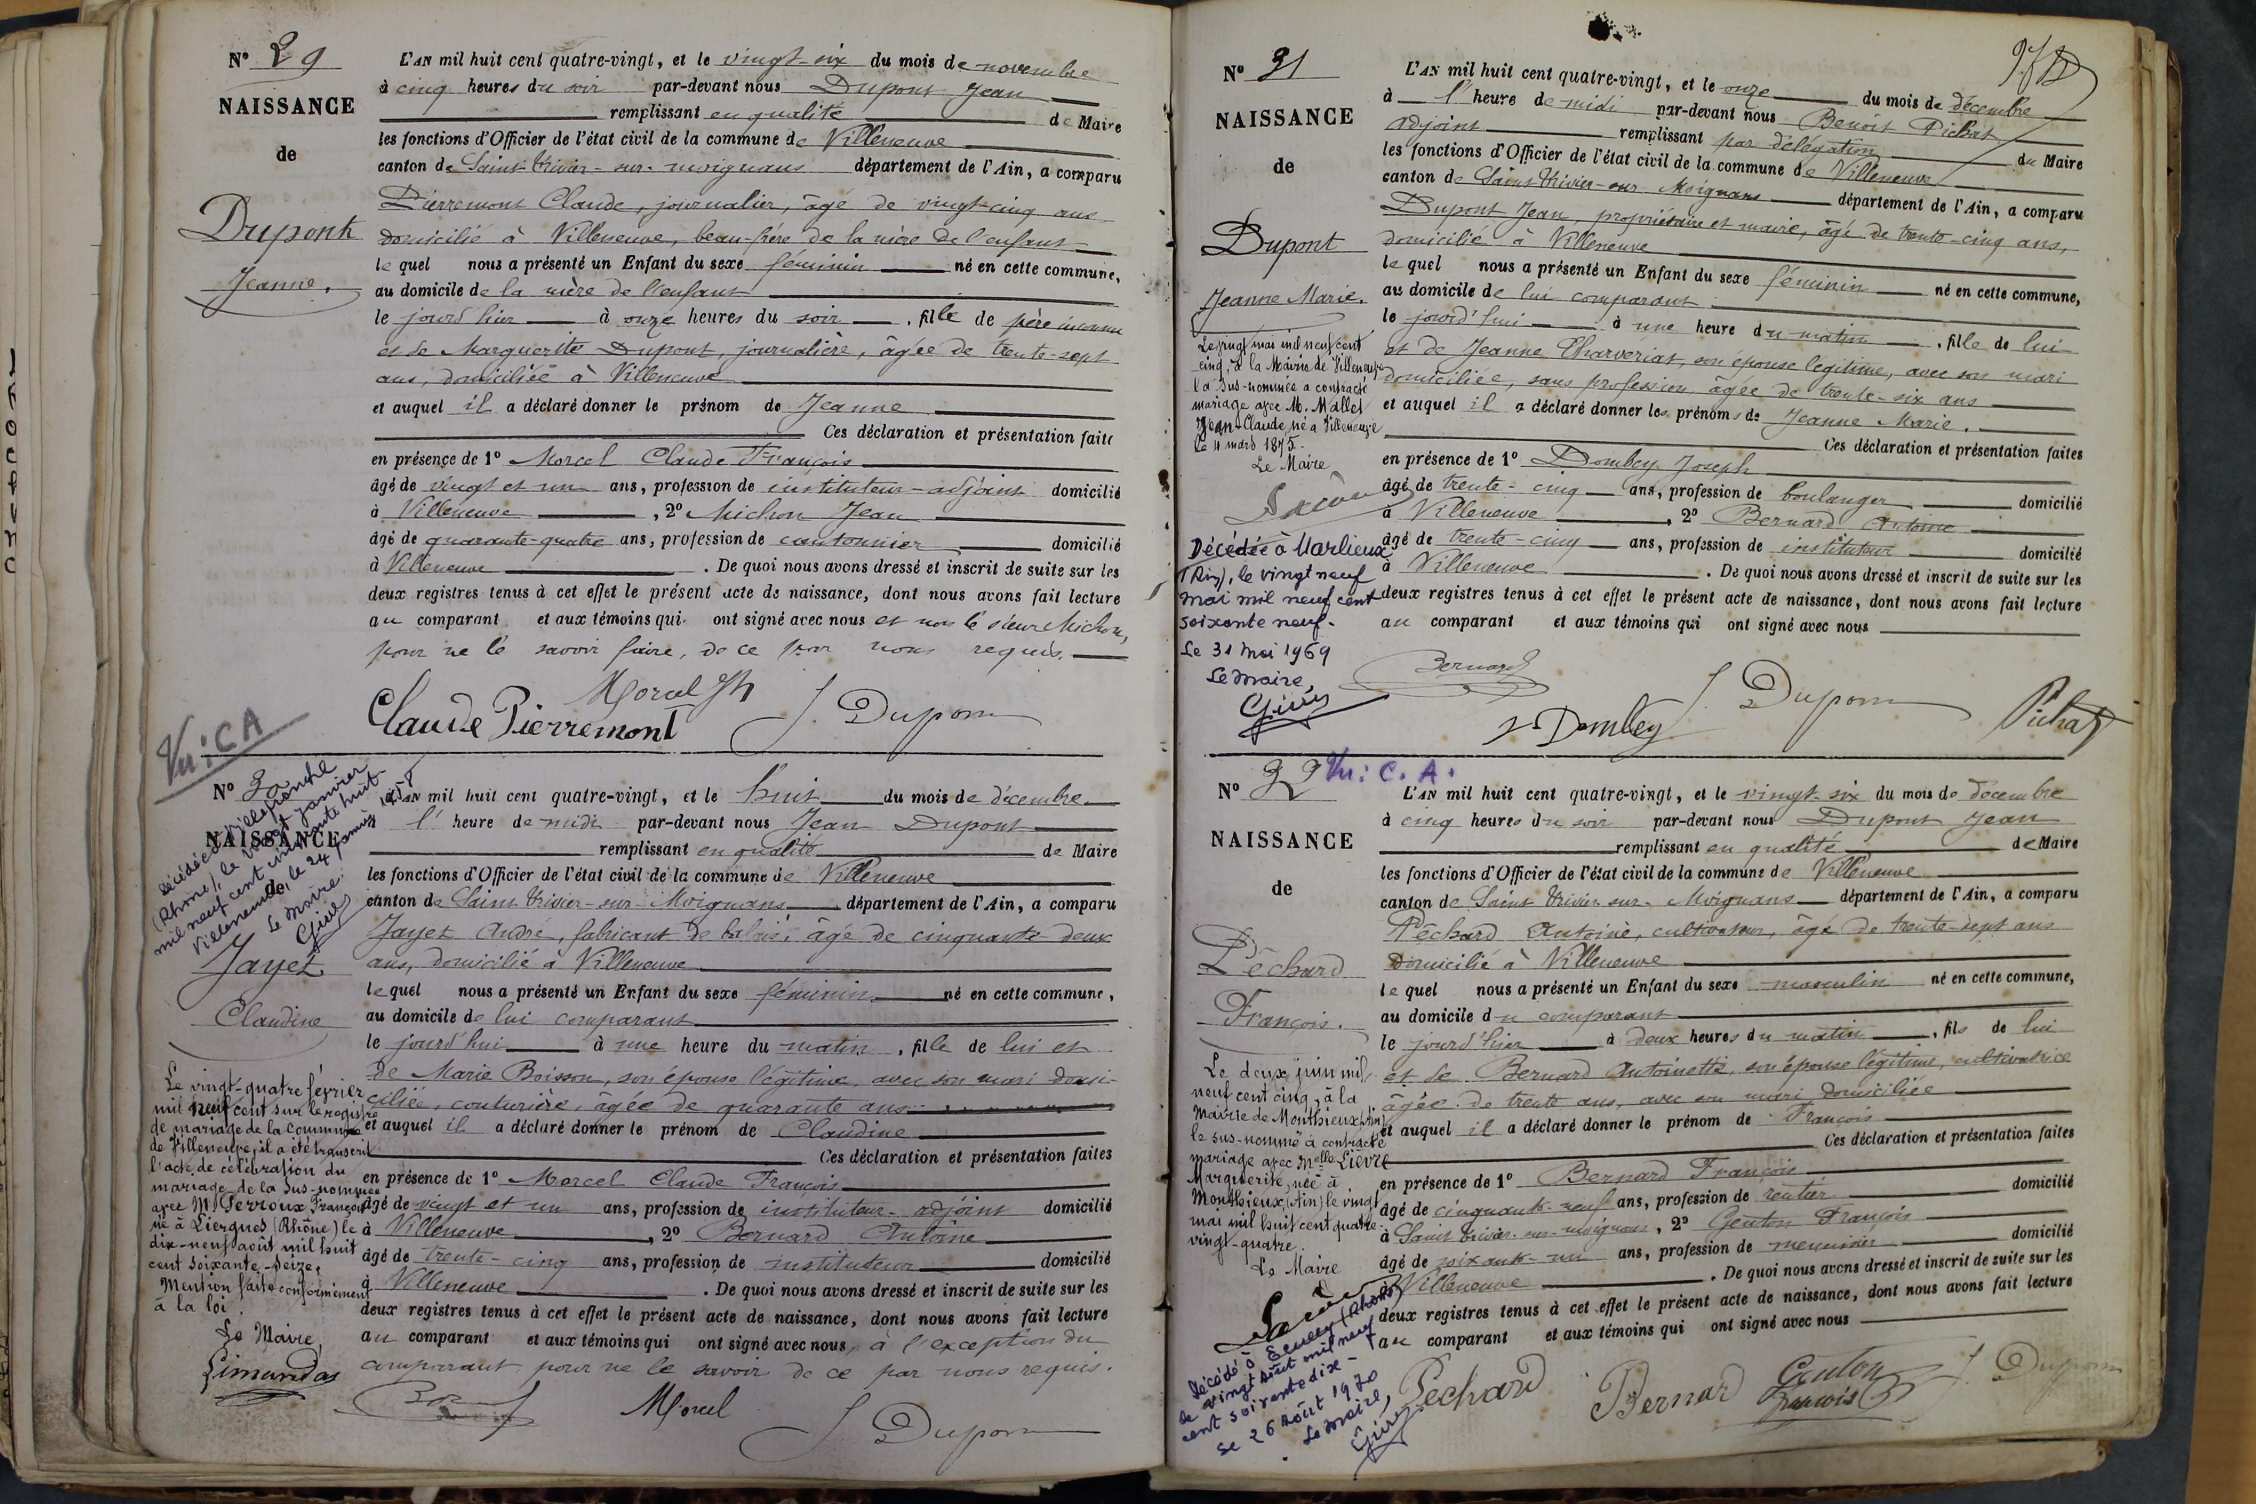 N° 29
NAISSANCE
de
Dupont
Jeanne.
L'AN mil huit cent quatre-vingt, et le vingt-six du mois de novembre
à cinq heures du soir par-devant nous Dupont Jean
remplissant en qualité de Maire
les fonctions d'Officier de l'état civil de la commune de Villeneuve
canton de Saint-Trivier-sur-moignans département de l'Ain, a comparu
Pierremont Claude, journalier, âgé de vingt-cinq ans
domicilié à Villeneuve, beau-frère de la mère de l'enfant
lequel nous a présenté un Enfant du sexe féminin né en cette commune,
au domicile de la mère de l'enfant
le jour d'hier à onze heures du soir, fille de père inconnu
et de Marguerite Dupont, journalière, âgée de trente-sept
ans, domiciliée à Villeneuve
et auquel il a déclaré donner le prénom de Jeanne
Ces déclaration et présentation faite
en présence de 1° Morcel Claude François
âgé de vingt et un ans, profession de instituteur-adjoint domicilié
à Villeneuve, 2° Michon Jean
âgé de quarante-quatre ans, profession de cantonnier domicilié
à Villeneuve. De quoi nous avons dressé et inscrit de suite sur les
deux registres tenus à cet effet le présent acte de naissance, dont nous avons fait lecture
au comparant et aux témoins qui ont signé avec nous et non le sieur Michon,
pour ne le savoir faire, de ce par nous requis.
Morcel
Claude Pierremont J. Dupont
Vu: C A
N° 30
NAISSANCE
de
Jayet
Claudine
Décédée à Villefranche
(Rhône), le vingt janvier
mil neuf cent cinquante huit-
Villeneuve, le 24 janvier 1958
Le Maire:
Le vingt-quatre février
mil neuf cent sur le registre
de mariage de la commune
de Villeneuve, il a été transcrit
l'acte de célébration du
mariage de la sus-nommée
avec M. Perroux François
né à Liergues (Rhône) le
dix-neuf août mil huit
cent soixante-seize,
Mention faite conformément
à la loi.
Le Maire
Limandas
L'AN mil huit cent quatre-vingt, et le huit du mois de décembre
l' heure de midi par-devant nous Jean Dupont
remplissant en qualité de Maire
les fonctions d'Officier de l'état civil de la commune de Villeneuve
canton de Saint Trivier-sur-Moignans département de l'Ain, a comparu
Jayet André, fabricant de balais, âgé de cinquante deux
ans, domicilié à Villeneuve
lequel nous a présenté un Enfant du sexe féminin né en cette commune,
au domicile de lui comparant
le jourd'hui à une heure du matin, fille de lui et
de Marie Boisson, son épouse légitime, avec son mari domi-
ciliée, couturière, âgée de quarante ans
et auquel il a déclaré donner le prénom de Claudine
Ces déclaration et présentation faites
en présence de 1° Morcel Claude François
âgé de vingt et un ans, profession de instituteur-adjoint domicilié
à Villeneuve, 2° Bernard Antoine
âgé de trente-cinq ans, profession de instituteur domicilié
à Villeneuve. De quoi nous avons dressé et inscrit de suite sur les
deux registres tenus à cet effet le présent acte de naissance, dont nous avons fait lecture
au comparant et aux témoins qui ont signé avec nous, à l'exception du
comparant pour ne le savoir de ce par nous requis.
Morcel
J. Dupont
N° 31
NAISSANCE
de
Dupont
Jeanne Marie.
Le vingt mai mil neuf cent
cinq, à la Mairie de Villeneuve
la sus-nommée a contracté
mariage avec M. Mallet
Jean-Claude, né à Villeneuve
le 11 mars 1875.
Le Maire
Décédée à Marlieux
(Ain), le vingt neuf
mai mil neuf cent
soixante neuf.
Le 31 mai 1969
Le maire,
L'AN mil huit cent quatre-vingt, et le onze du mois de décembre
à l' heure de midi par-devant nous Benoit Pichat
adjoint remplissant par délégation du Maire
les fonctions d'Officier de l'état civil de la commune de Villeneuve
canton de Saint-Trivier-sur Moignans département de l'Ain, a comparu
Dupont Jean, propriétaire et maire, âgé de trente-cinq ans,
domicilié à Villeneuve
lequel nous a présenté un Enfant du sexe féminin né en cette commune,
au domicile de lui comparant
le jourd'hui à une heure du matin, fille de lui
et de Jeanne Charverias, son épouse légitime, avec son mari
domiciliée, sans profession, âgée de trente-six ans
et auquel il a déclaré donner les prénoms de Jeanne Marie.
Ces déclaration et présentation faites
en présence de 1° Dombey Joseph
âgé de trente-cinq ans, profession de boulanger domicilié
à Villeneuve, 2° Bernard Antoine
âgé de trente-cinq ans, profession de instituteur domicilié
à Villeneuve. De quoi nous avons dressé et inscrit de suite sur les
deux registres tenus à cet effet le présent acte de naissance, dont nous avons fait lecture
au comparant et aux témoins qui ont signé avec nous
Bernard
J. Dupont
Dombey Pichat
N° 32
Vu: C. A.
NAISSANCE
de
Péchard
François.
Le deux juin mil
neuf cent cinq, à la
Mairie de Monthieux (Ain)
le sus-nommé a contracté
mariage avec Melle Lièvre
Marguerite, née à
Monthieux (Ain) le vingt
mai mil huit cent quatre-
vingt-quatre.
Le Maire
Décédé à Ecully (Rhône)
le vingt août mil neuf
cent soixante dix -
Le 26 août 1970
Le maire,
L'AN mil huit cent quatre-vingt, et le vingt-six du mois de décembre
à cinq heures du soir par-devant nous Dupont Jean
remplissant en qualité de Maire
les fonctions d'Officier de l'état civil de la commune de Villeneuve
canton de Saint Trivier-sur-Moignans département de l'Ain, a comparu
Péchard Antoine, cultivateur, âgé de trente-sept ans
domicilié à Villeneuve
lequel nous a présenté un Enfant du sexe masculin né en cette commune,
au domicile du comparant
le jour d'hier à deux heures du matin, fils de lui
et de Bernard Antoinette, son épouse légitime, cultivatrice
âgée de trente ans, avec son mari domiciliée
et auquel il a déclaré donner le prénom de François
Ces déclaration et présentation faites
en présence de 1° Bernard François
âgé de cinquante-neuf ans, profession de rentier domicilié
à Saint Trivier-sur-moignans, 2° Genton François
âgé de soixante-un ans, profession de meunier domicilié
Villeneuve. De quoi nous avons dressé et inscrit de suite sur les
deux registres tenus à cet effet le présent acte de naissance, dont nous avons fait lecture
au comparant et aux témoins qui ont signé avec nous
Péchard Bernard Genton J. Dupont
François